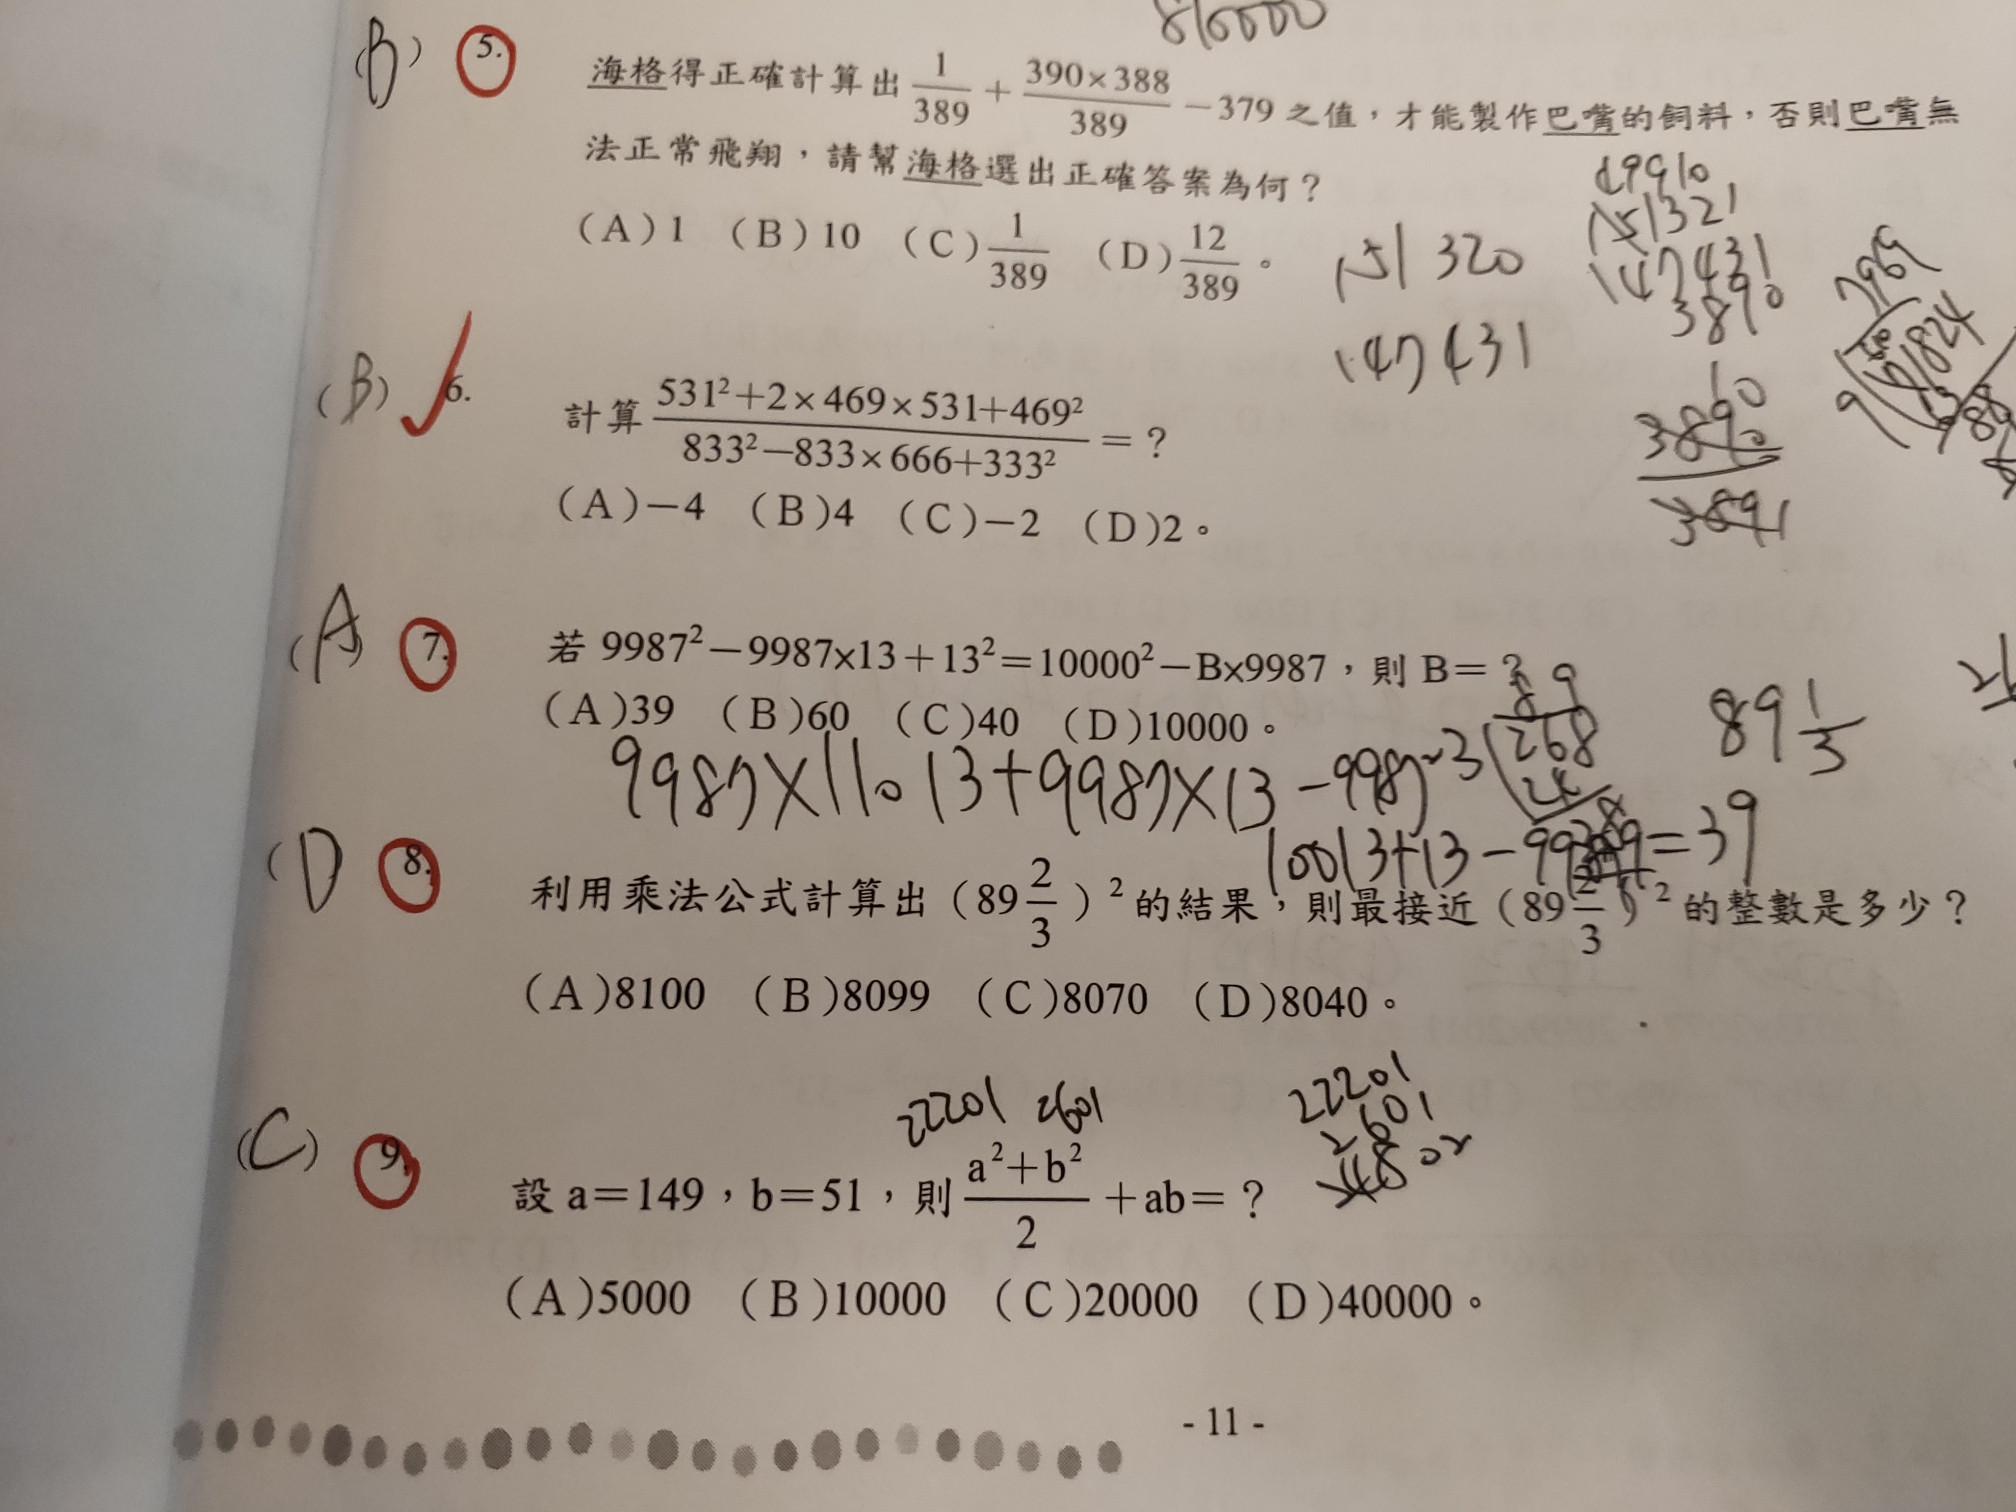 816000
(B) 5. 海格得正確計算出 1/389 + 390×388/389 －379 之值，才能製作巴嘴的飼料，否則巴嘴無
法正常飛翔，請幫海格選出正確答案為何？
(A)1 (B)10 (C)1/389 (D)12/389。
151321
151320
147431
3890
147431
10
3890
3891
(B) 6. 計算 531²＋2×469×531＋469² / 833²－833×666＋333² ＝？
(A)－4 (B)4 (C)－2 (D)2。
(A) 7. 若 9987²－9987×13＋13²＝10000²－B×9987，則 B＝？
(A)39 (B)60 (C)40 (D)10000。
89
3 268
24
89 1/3
10013+13－9987=39
(D 8. 利用乘法公式計算出（89 2/3）²的結果，則最接近（89 2/3）²的整數是多少？
(A)8100 (B)8099 (C)8070 (D)8040。
22201 2601
22201
2601
(C) 9. 設 a＝149，b＝51，則 a²＋b²/2 ＋ab＝？
(A)5000 (B)10000 (C)20000 (D)40000。
- 11 -